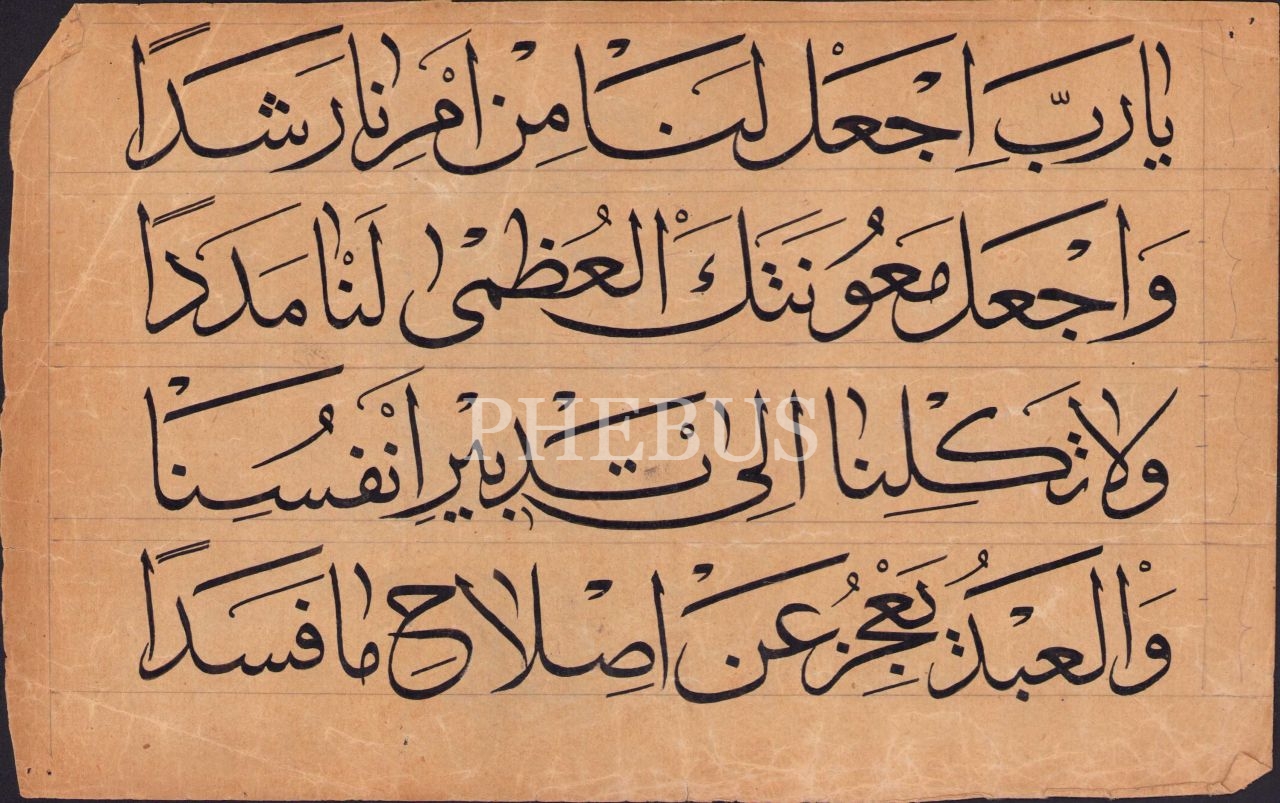 يا رَبِّ اِجْعَلْ لَنَا مِنْ اَمْرِنَا رَشَدًا
وَاجْعَل مَعُونَتَكَ الْعُظْمٰى لَنَا مَدَدًا
ولا تَكِلْنا اِلى تَدْبيْرِ اَنْفُسِنَا
وَالْعَبْدُ يَعْجِزُ عَنْ اِصْلاحِ ما فسَدًا
PHEBUS